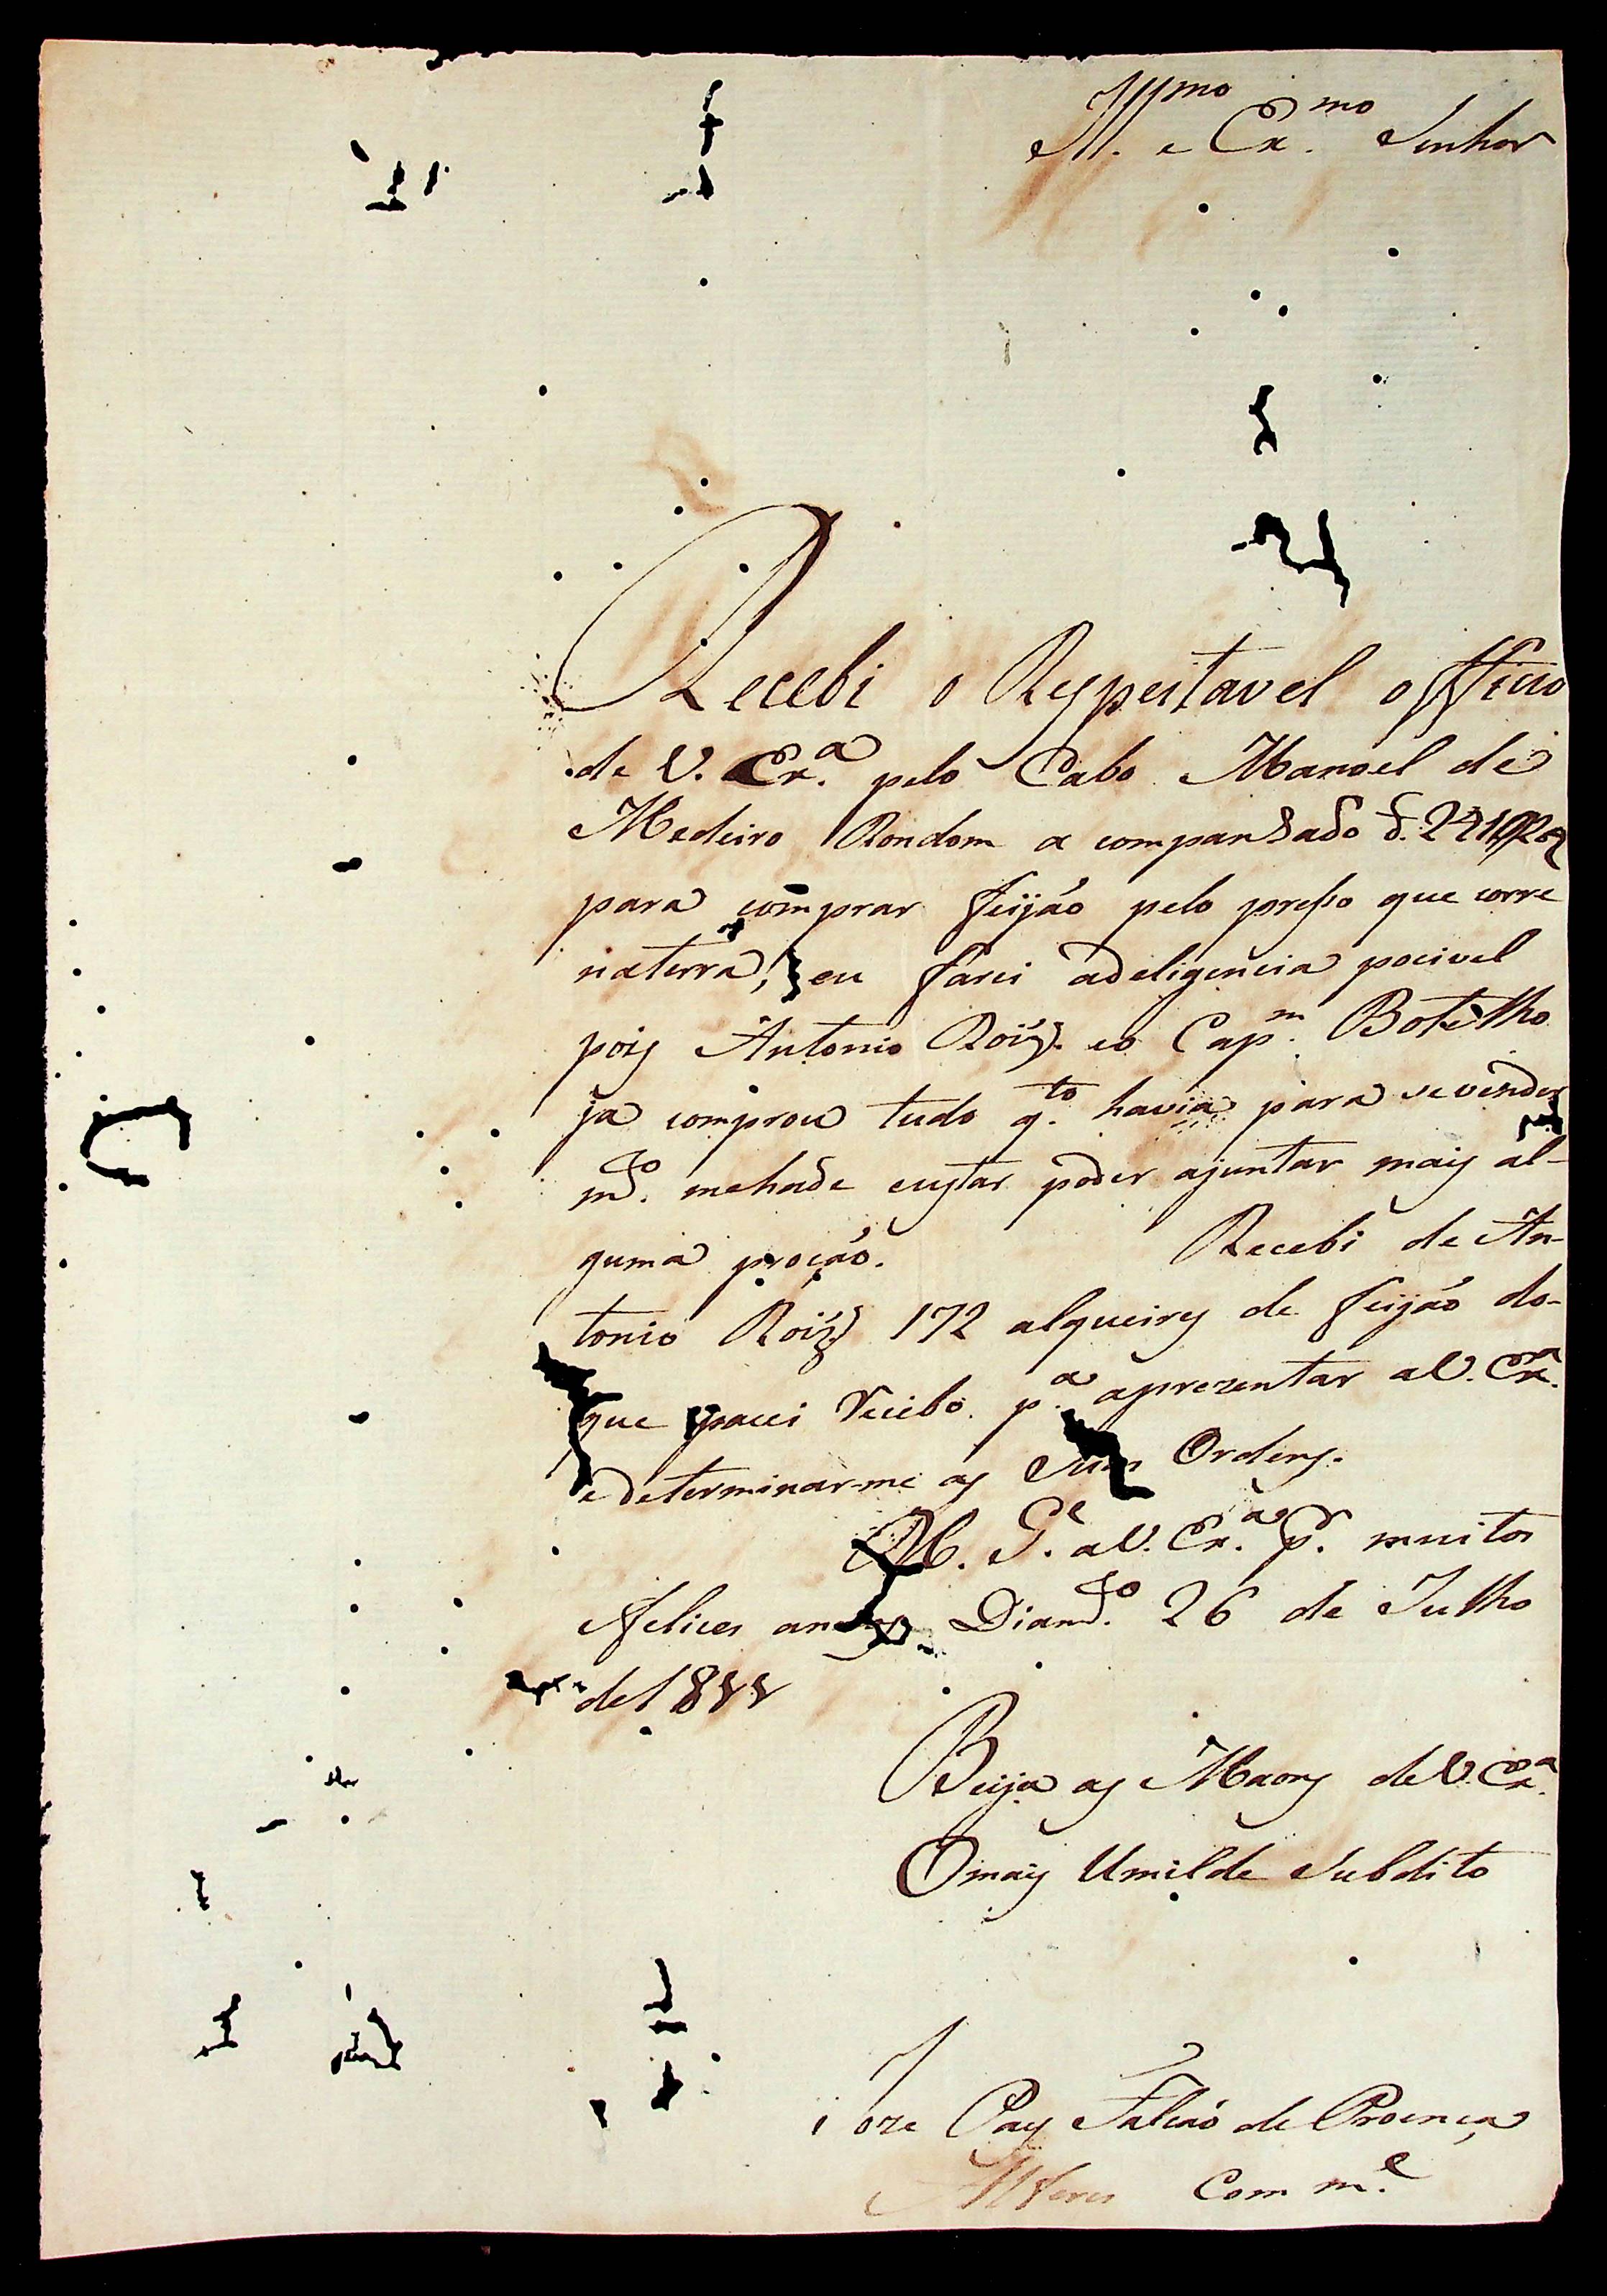 Ill.mo e Ex.mo Senhor
Recebi o Respeitavel officio
de V. Ex.a pelo Cabo Manoel de
Medeiro Rondom a companhado d.
para comprar feijáo pelo presso que corre
naterra, eu farei adeligencia pocivel
pois Antonio Roiz. eo Cap.m Botelho
ja comprou tudo q.to havia para se vender
m.to mehade custar poder ajuntar mais al-
guma proçáo. Recebi de An-
tonio Roiz 172 alqueires de feijáo do-
que pacei recibo p.a aprezentar aV. Ex.a
edeterminar-me as Suas Ordens.
D.s G.e aV. Ex.a p.r muitos
felices annos Diam.to 26 de Julho
de1811
Beija as Maons deV. Ex.a
Omais Umilde Subdito
Joze Pays Falcáo de Proença
Alferes Com m.e